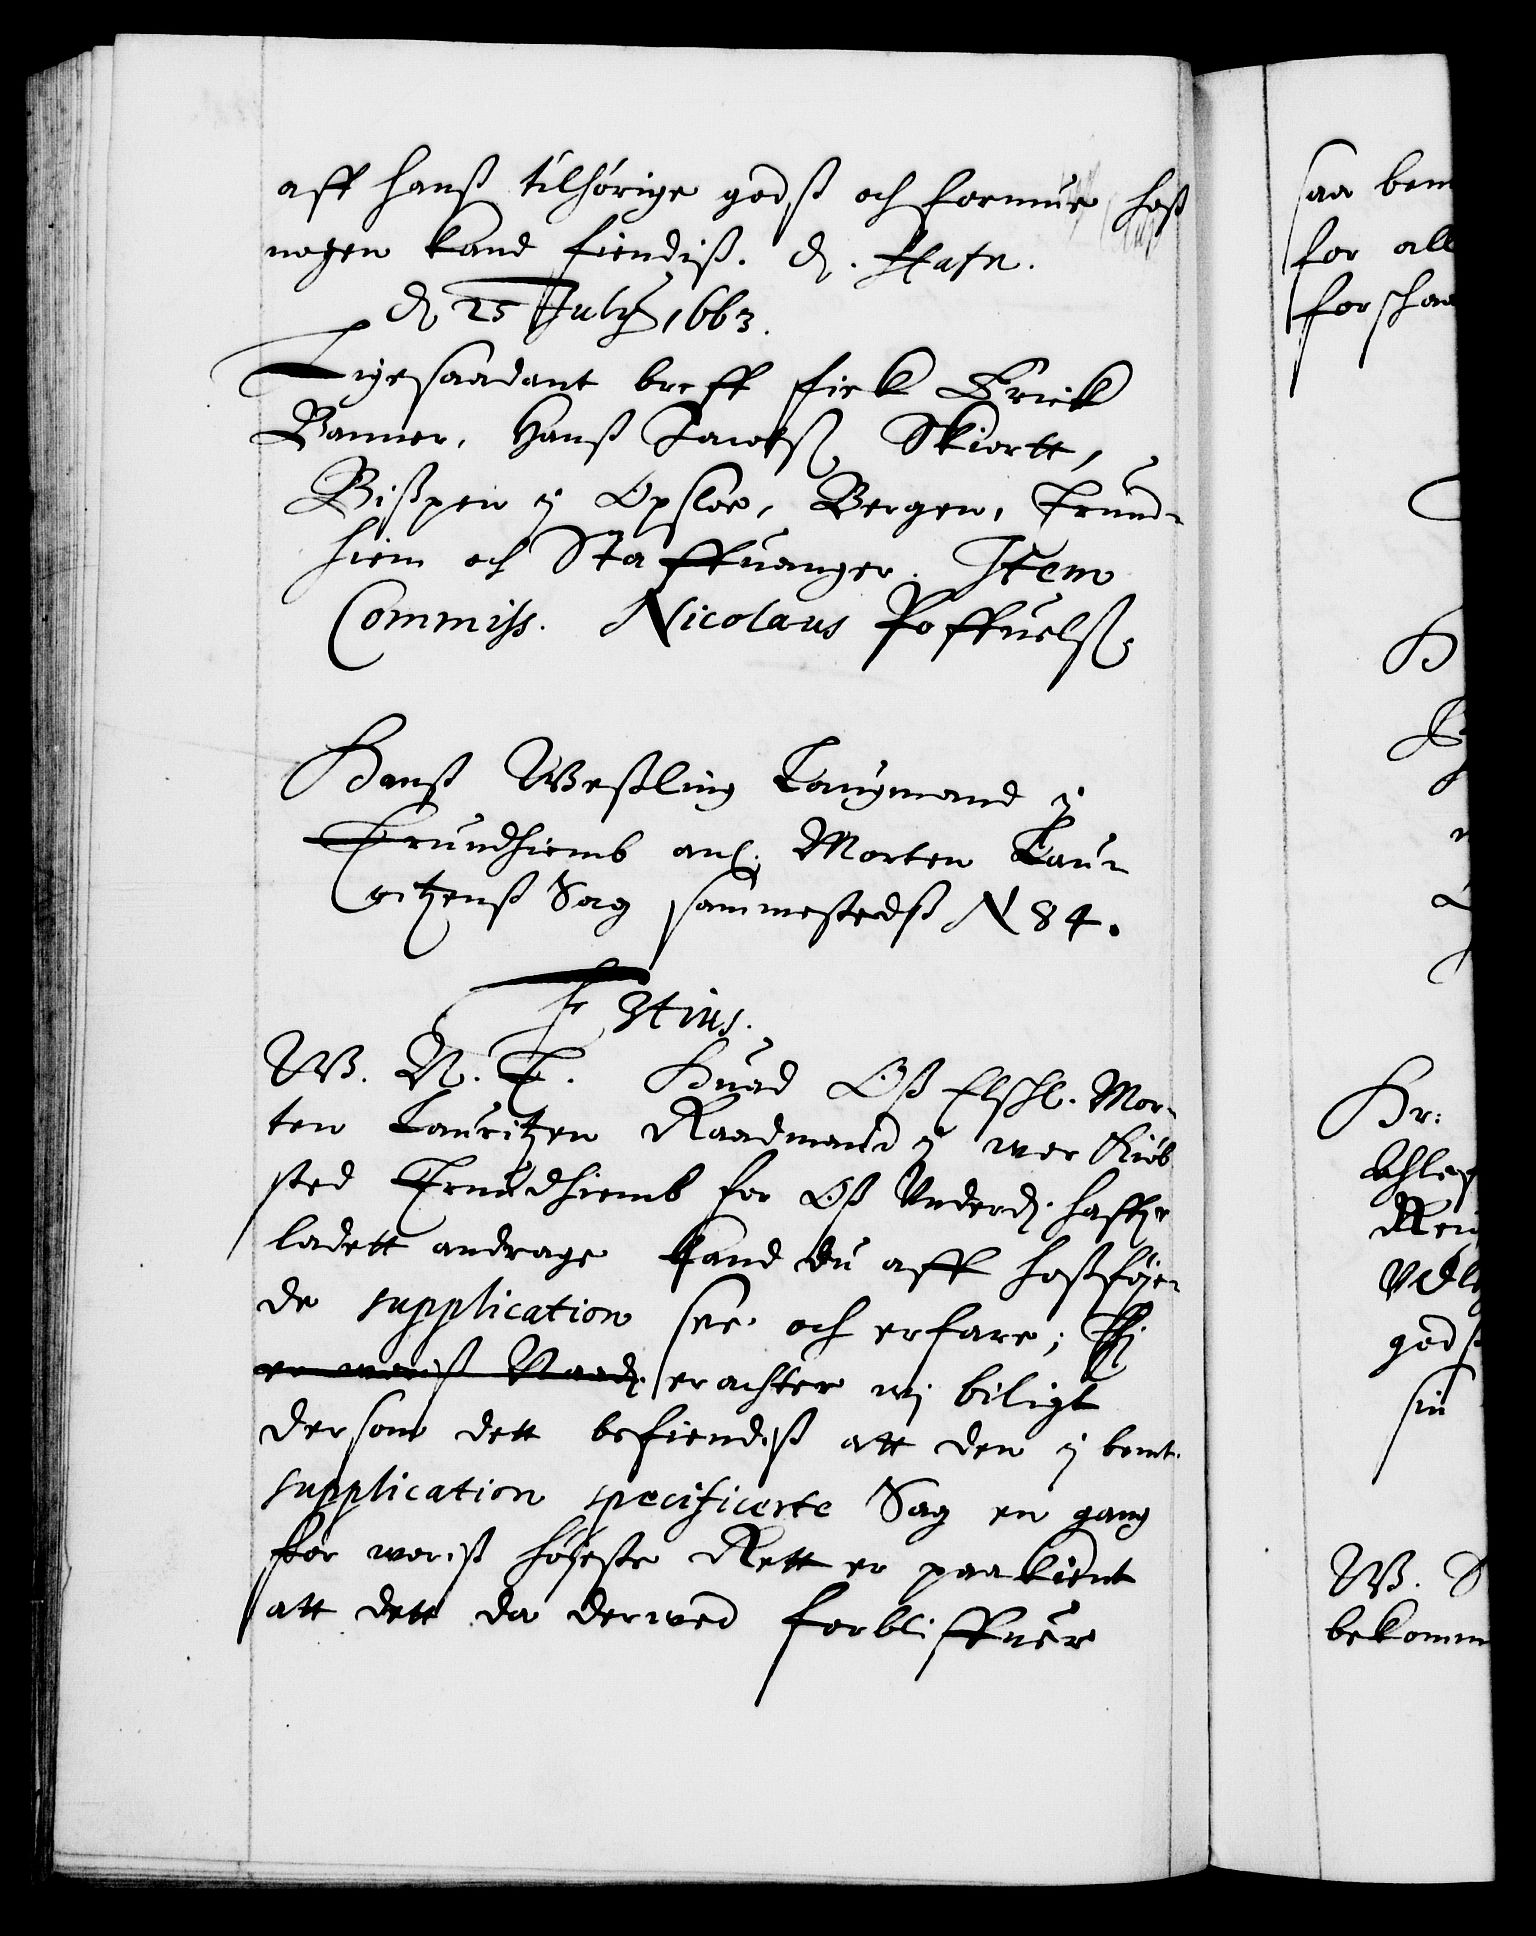 aff hanß tilhörige godß och formue hoß
nogen kand fiendiß. d. Hafn.
d 25 July 1663.
Ligesaadant breff fick Erick
Banner, Hanß Jacobß Skiortt,
Bißpen ÿ Opsloe, Bergen, Trund-
hiem och Staffuanger. Item
Commiss. Nicolaus Poffuelß.
Hanß Weßling Laugmand ÿ
Trundhiemb anl. Morten Lau-
ritzenß Sag sammestedß N 84.
F 3tius.
W. N. T. Huad Oß Elskl. Mor-
ten Lauritzen Raadmand ÿ wor Kiöb
sted Trundhiemb for Oß Underd. haffr
ladett andrage kand du aff hoßföye-
de supplication see och erfare; Thj
erachter wj biligt
dersom dett befiendeß att den ÿ bemt.
supplication specificerte Sag en gang
for woriß höyeste Rett er paakient
att dett da derwed forbliffuer
saa bem
for all
forschaa
H
Hr:
Uhle
Rei
Vdl
godß
sin
W.
bekomm